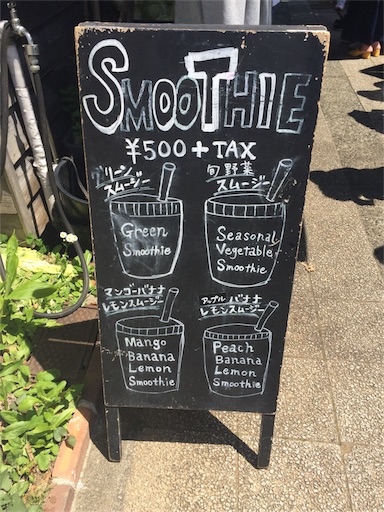 SMOOTHIE
¥500 + TAX
グリーン
スムージー
Green
Smoothie
旬野菜
スムージー
Seasonal
Vegetable
Smoothie
マンゴーバナナ
レモンスムージー
Mango
Banana
Lemon
Smoothie
アップルバナナ
レモンスムージー
Peach
Banana
Lemon
Smoothie